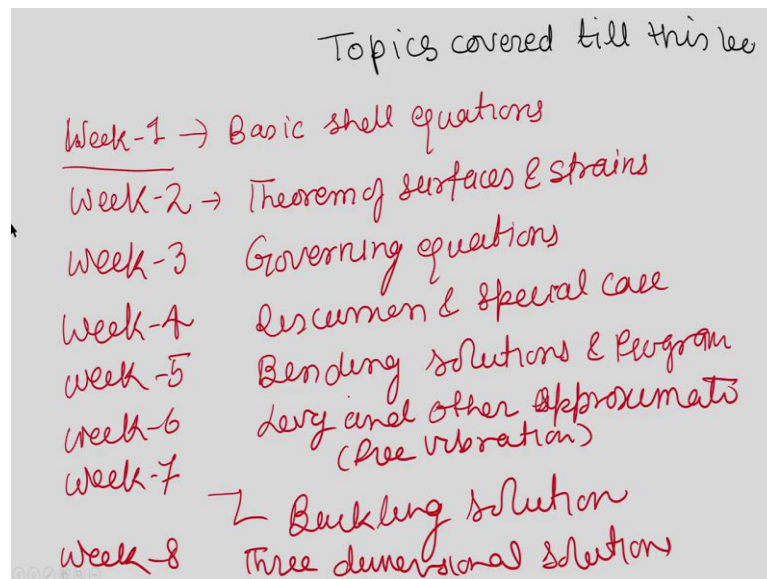 Topics covered till this lec
Week-1 → Basic shell equations
Week-2 → Theorem of surfaces & strains
Week-3 Governing equations
Week-4 Discussion & special case
week-5 Bending solutions & Program
week-6 Levy and other approximati
(free vibration)
week-7
Buckling solution
week-8 Three dimensional solutions